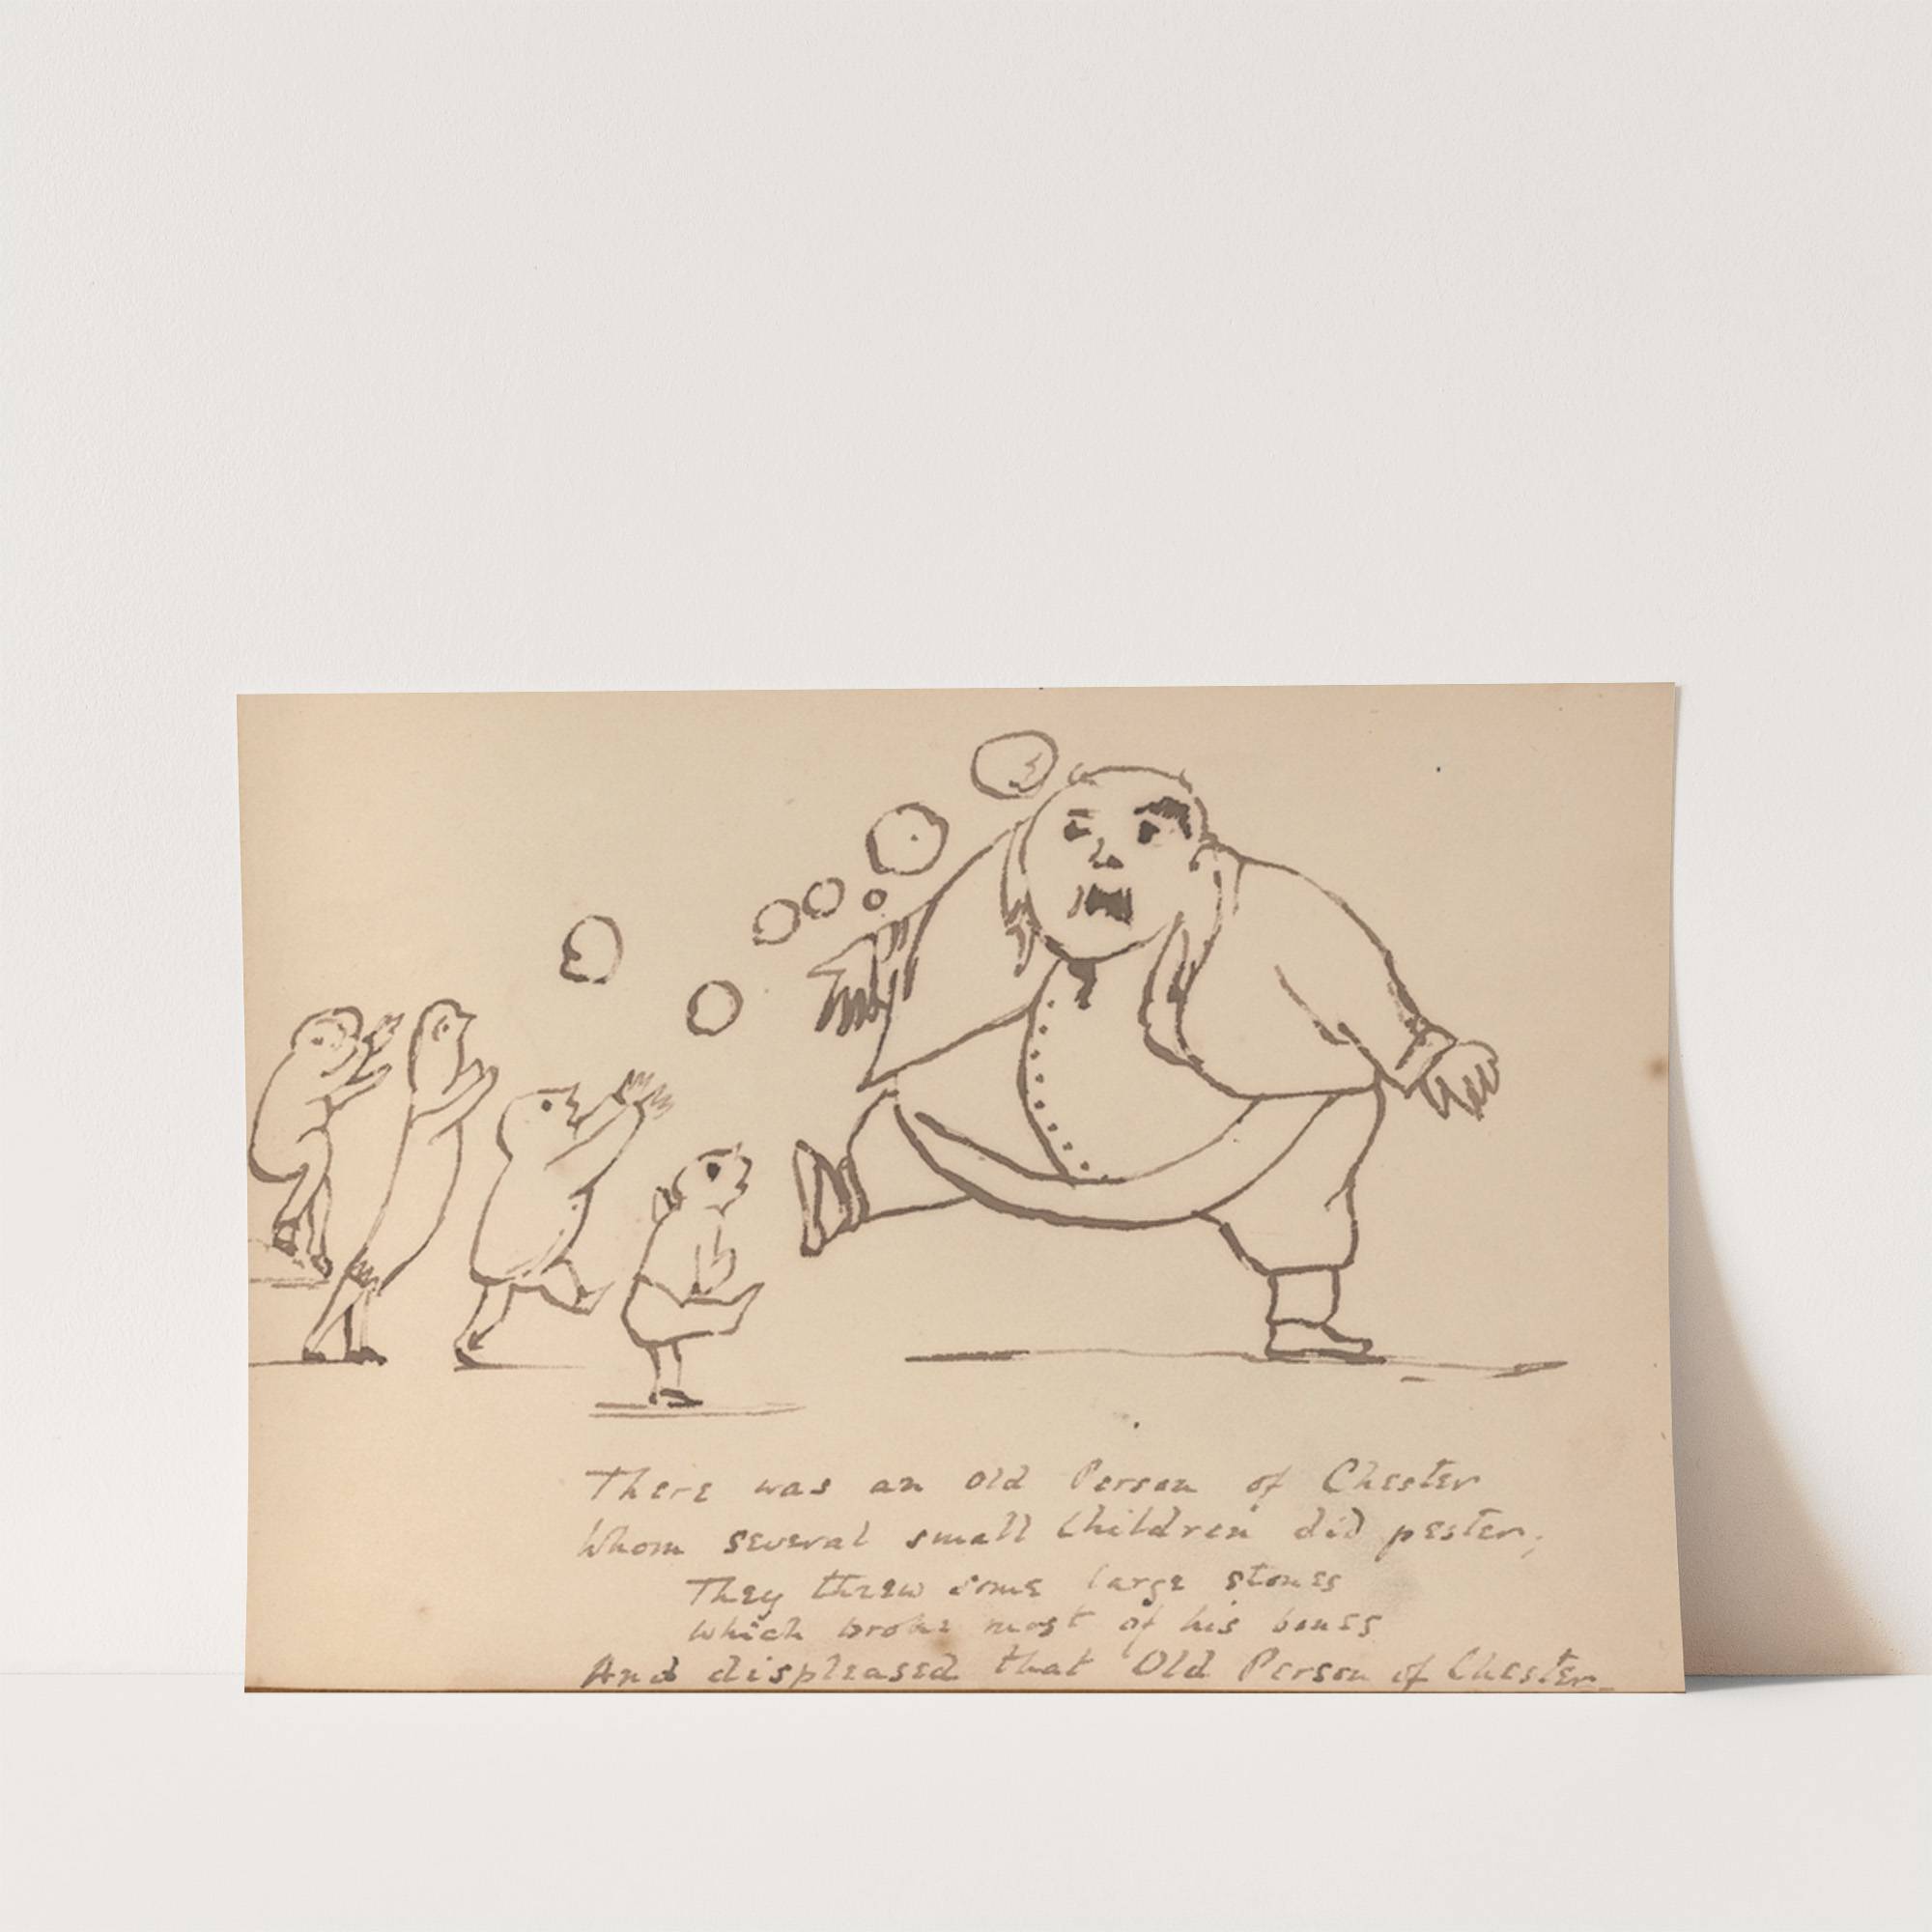 There was an Old Person of Chester
Whom several small Children did pester;
They threw some large stones
Which broke most of his bones
And displeased that Old Person of Chester_